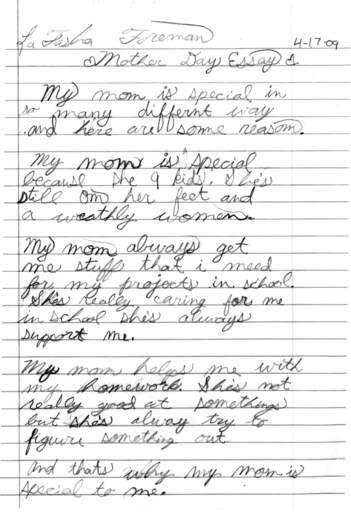 La Tasha Foreman 4-17-09
Mother Day Essay
My mom is special in
so many differnt way
and here are some reason.
My mom is special
because she 9 kids. She's
still on her feet and
a weathly women.
My mom always get
me stuff that i need
for my projects in school.
She's really caring for me
in school she's always
support me.
My mom helps me with
my homework. She's not
really good at somethings
but she's alway try to
figuire something out
And thats why my mom is
special to me.